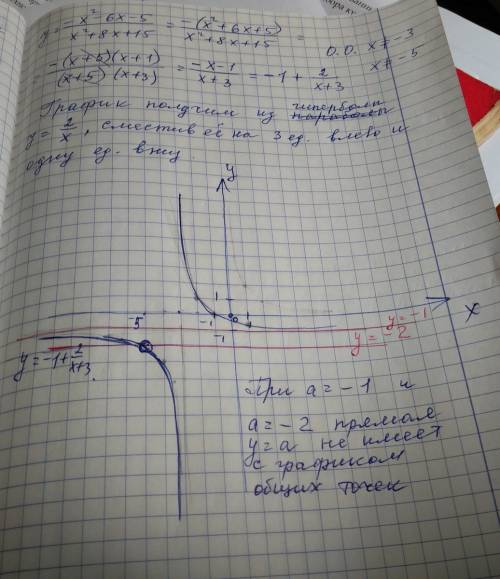 y = (-x² - 6x - 5)/(x² + 8x + 15) = -(x² + 6x + 5)/(x² + 8x + 15) =
О.О. x ≠ -3
x ≠ -5
-(x+5)(x+1)/(x+5)(x+3) = (-x-1)/(x+3) = -1 + 2/(x+3)
График получим из гиперболы
y = 2/x, сместив её на 3 ед. влево и
одну ед. вниз.
y
1
-1
0
1
-1
x
-5
y = -1
y = -2
y = -1 + 2/(x+3).
При a = -1 и
a = -2 прямая
y = a не имеет
с графиком
общих точек